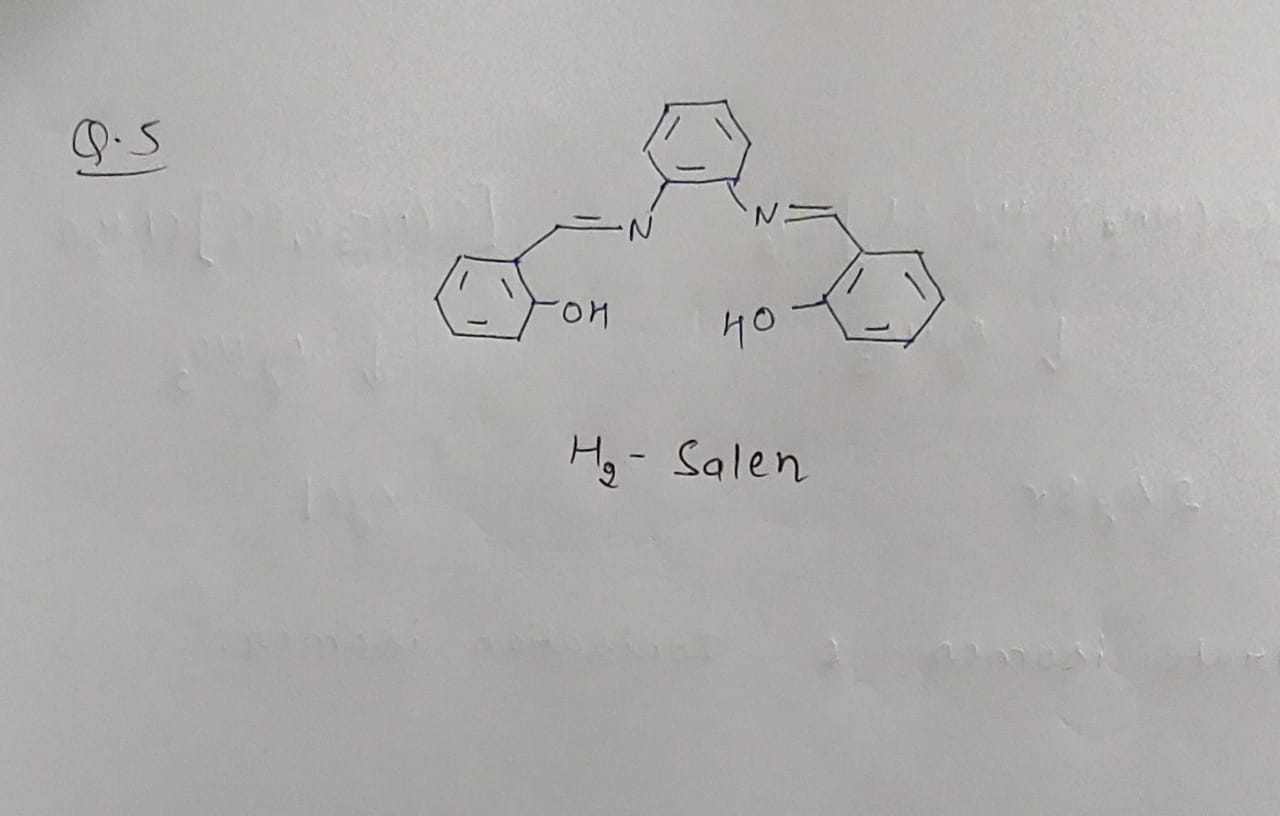 Q.5
N N
OH HO
H₂- Salen